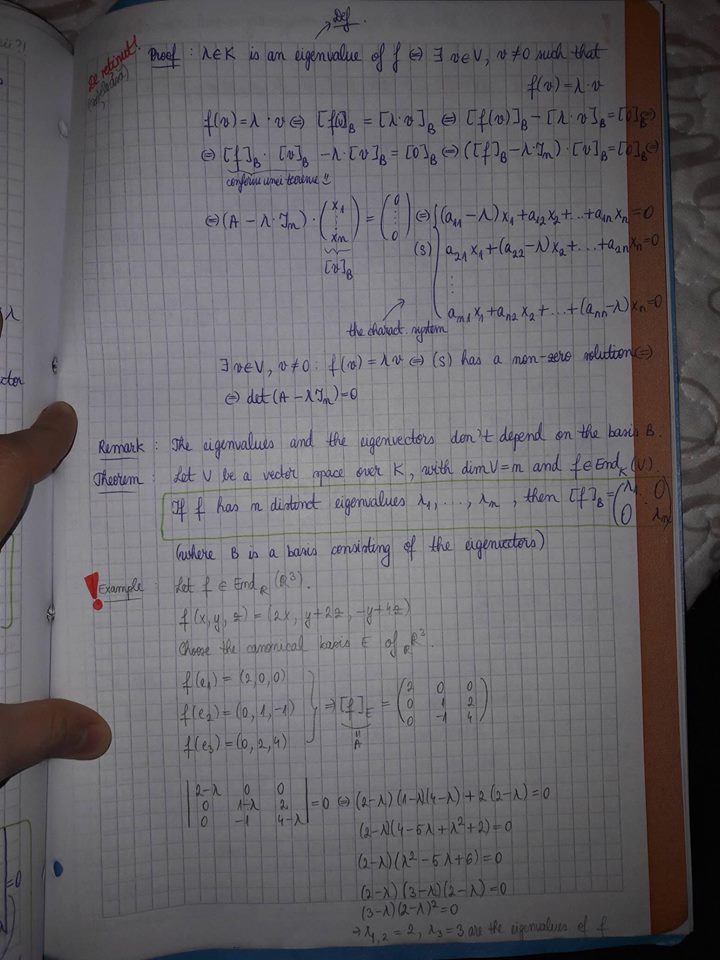 Def
De reținut!
Proof : λ∈K is an eigenvalue of f ⇔ ∃ v∈V, v≠0 such that
f(v)=λ·v
f(v)=λ·v ⇔ [f(v)]_B = [λ·v]_B ⇔ [f(v)]_B − [λ·v]_B = [0]_B ⇔
⇔ [f]_B · [v]_B − λ·[v]_B = [0]_B ⇔ ([f]_B − λ·I_n)·[v]_B = [0]_B ⇔
conform unei teoreme !!
⇔ (A − λ·I_n) · (x_1 ⋮ x_n) = (0 ⋮ 0) ⇔ (S) { (a_11 − λ)x_1 + a_12 x_2 + ... + a_1n x_n = 0
[v]_B
a_21 x_1 + (a_22 − λ)x_2 + ... + a_2n x_n = 0
⋮
a_n1 x_1 + a_n2 x_2 + ... + (a_nn − λ)x_n = 0
the charact. system
∃ v∈V, v≠0 : f(v) = λv ⇔ (S) has a non-zero solution ⇔
⇔ det(A − λI_n) = 0
Remark : The eigenvalues and the eigenvectors don't depend on the basis B.
Theorem : Let V be a vector space over K, with dim V = n and f∈End_K(V).
If f has n distinct eigenvalues λ_1, ..., λ_n, then [f]_B = (λ_1 0 0 λ_n)
(where B is a basis consisting of the eigenvectors)
! Example : Let f ∈ End_ℝ(ℝ^3).
f(x,y,z) = (2x, y+2z, −y+4z)
Choose the canonical basis E of _ℝℝ^3.
f(e_1) = (2,0,0)
f(e_2) = (0,1,−1) } ⇒ [f]_E = (2 0 0 0 1 2 0 −1 4)
f(e_3) = (0,2,4)
A
|2−λ 0 0 0 1−λ 2 0 −1 4−λ| = 0 ⇔ (2−λ)(1−λ)(4−λ) + 2(2−λ) = 0
(2−λ)(4−5λ+λ^2+2) = 0
(2−λ)(λ^2−5λ+6) = 0
(2−λ)(3−λ)(2−λ) = 0
(3−λ)(2−λ)^2 = 0
⇒ λ_1,2 = 2, λ_3 = 3 are the eigenvalues of f.